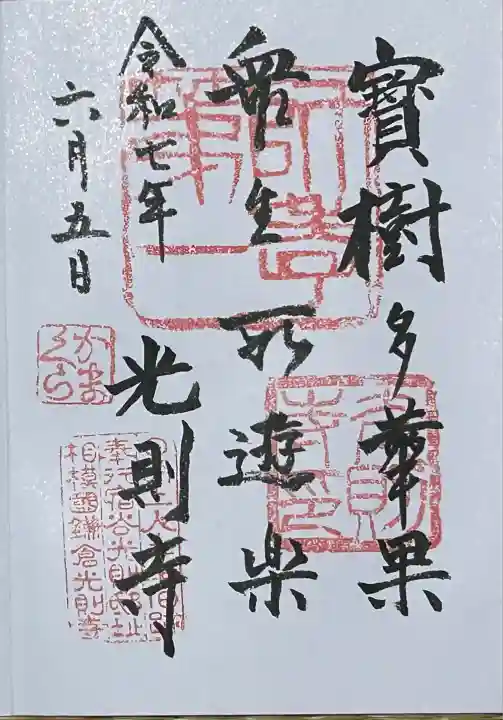 寶樹多華果
衆生所遊楽
令和七年
六月五日
光則寺
かまくら
奉行宿谷光則邸址
相模國鎌倉光則寺